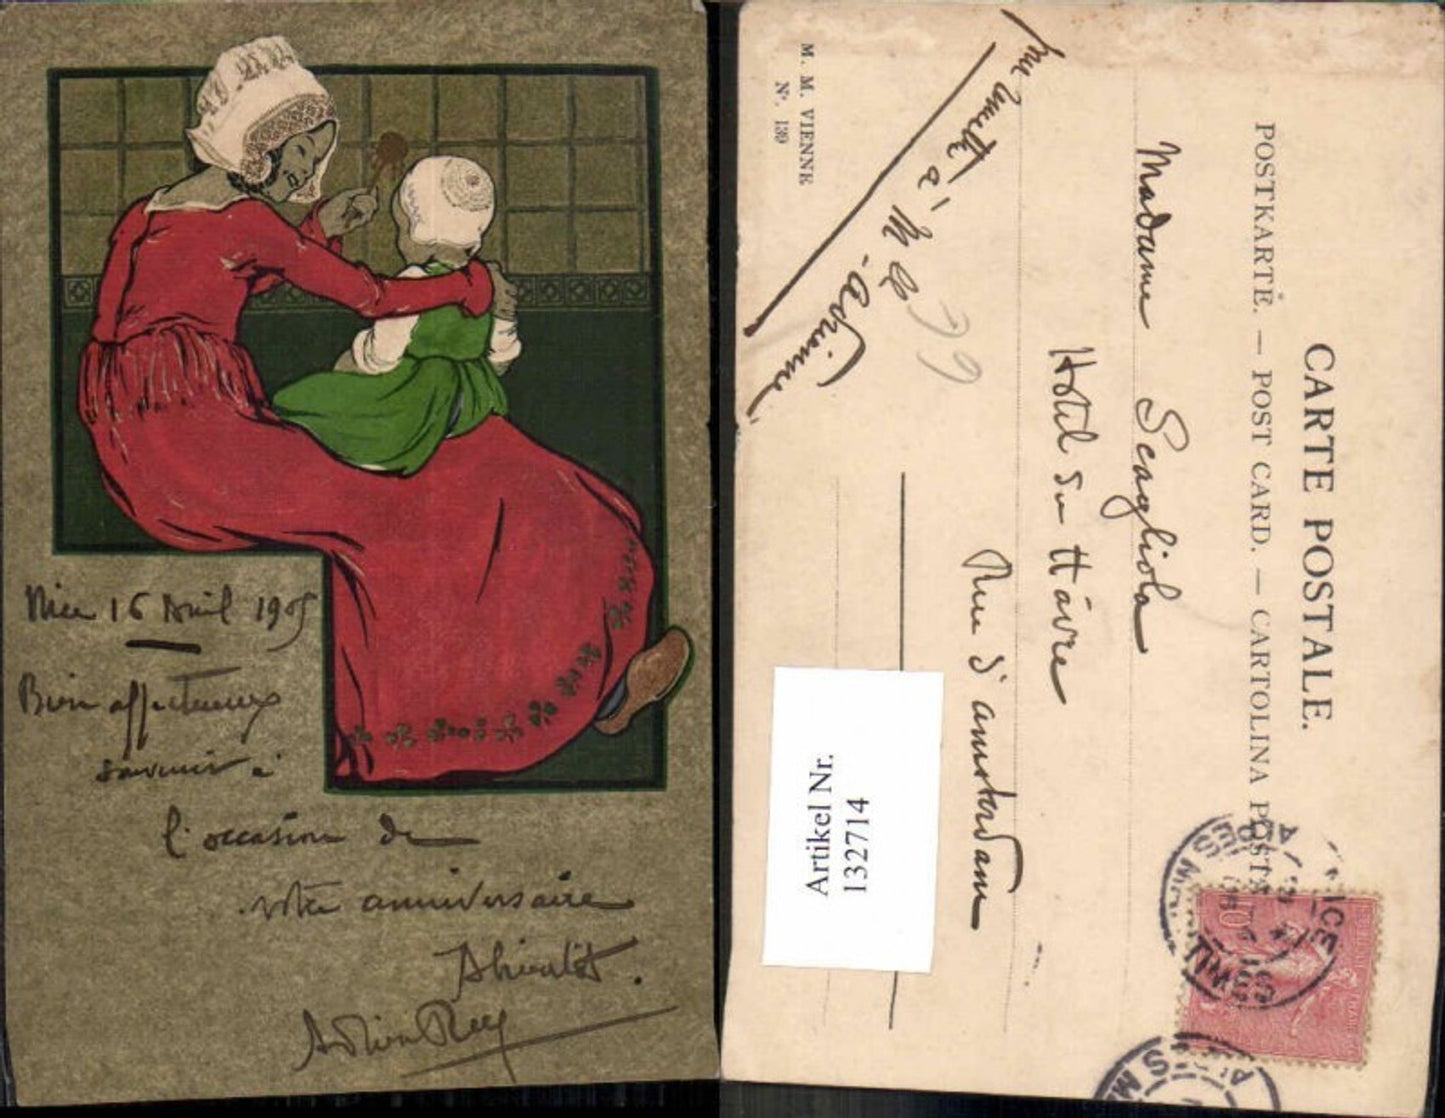 Nice 16 Avril 1905
Bien affectueux
souvenir à
l'occasion de
votre anniversaire
A bientôt.
Adrien Rey
CARTE POSTALE.
POSTKARTE. — POST CARD. — CARTOLINA POSTALE
Madame Scagliola
Hotel du Hâvre
Rue d'amsterdam
M. M. VIENNE
Nº. 139
à Mlle
Adrienne
69
NICE
ALPES MARIMES
10
Artikel Nr.
132714